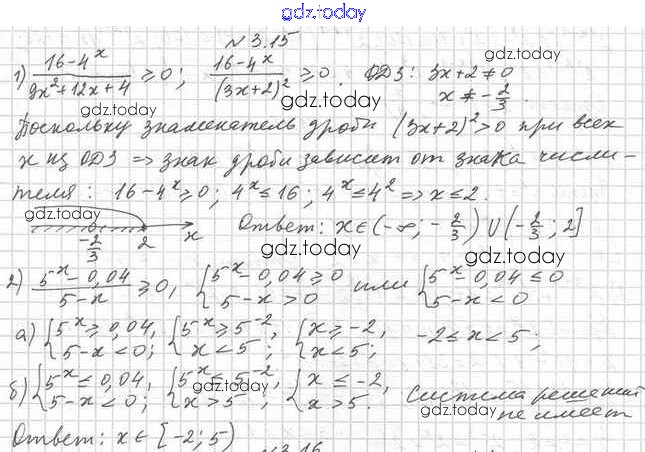 gdz.today
№3.15
1) (16-4^x)/(9x²+12x+4) ≥ 0; (16-4^x)/(3x+2)² ≥ 0. ОДЗ: 3x+2≠0
x ≠ -2/3.
gdz.today
Поскольку знаменатель дроби (3x+2)²>0 при всех
gdz.today
x из ОДЗ => знак дроби зависит от знака числи-
gdz.today
теля: 16-4^x≥0; 4^x≤16; 4^x≤4² => x≤2.
gdz.today
-2/3 2 x Ответ: x∈(-∞; -2/3)∪(-2/3; 2]
gdz.today
2) (5^x-0,04)/(5-x) ≥0, {5^x-0,04≥0 5-x>0 или {5^x-0,04≤0 5-x<0
gdz.today
а) {5^x≥0,04, 5-x<0; {5^x≥5^-2, x<5; {x≥-2, x<5; -2≤x<5;
б) {5^x≤0,04, 5-x<0; {5^x≤5^-2, x>5; {x≤-2, x>5. система решений
gdz.today
не имеет
gdz.today
Ответ: x∈[-2; 5)